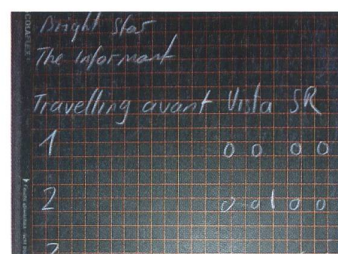 Bright Star
The Informant
Travelling avant Vista SR
1 0 0 0 0
2 0 0 1 0 0